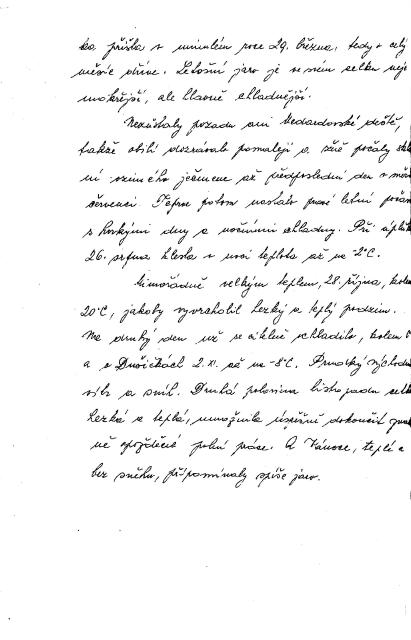 ka přišla v minulém roce 29. března, tedy o celý
měsíc dříve. Letošní jaro je ve všem celku nejen
mokřejší, ale hlavně chladnější.
Nezůstaly pozadu ani Medardovské deště,
takže obilí dozrávalo pomaleji a žně počaly
ní ozimého ječmene až předposlední den v měs
červenci. Teprve potom nastalo pravé letní počas
s horkými dny a nočními chlady. Při úplň
26. srpna klesla v noci teplota až na -2°C.
Mimořádně velkým teplem, 28. října, kolem
20°C, jakoby vyvrcholil hezký a teplý podzim.
Na druhý den už se citelně ochladilo, kolem 0
a o Dušičkách 2.XI. až na -8°C. Prudký východní
vítr a sníh. Druhá polovina listopadu celk
hezká a teplá, umožnila úspěšně dokončit
ně opožděné polní práce. A Vánoce, teplé a
bez sněhu, připomínaly spíše jaro.